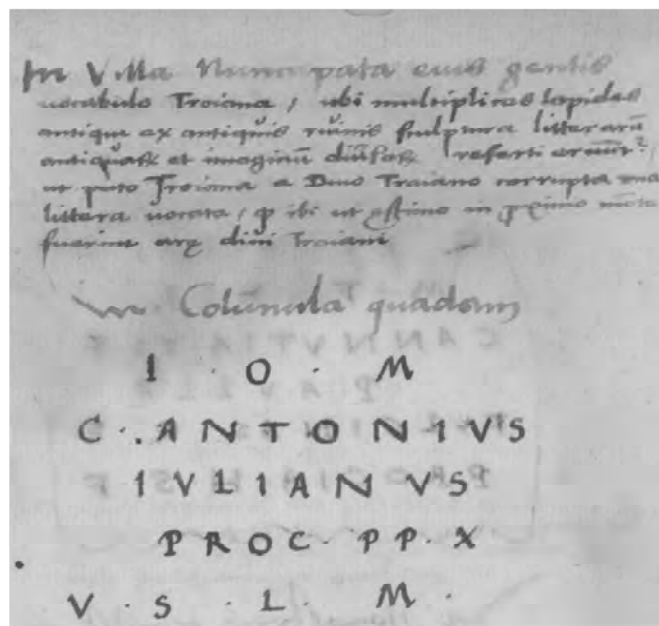 In Villa Nuncupata eius gentis
vocabulo Troiana / ubi multiplices lapides
antiqui ex antiquis ruinis sculptura litterarū
antiquaꝝ et imaginū diūsaꝝ referti erūt
ut puto Troiana a Divo Traiano corrupta una
littera vocata / ꝙ ibi ut estimo in proximo mōte
fuerint arę divi Traiani
In Colūnula quadam
I · O · M
C · ANTONIVS
IVLIANVS
PROC · PP · X
V · S · L · M ·